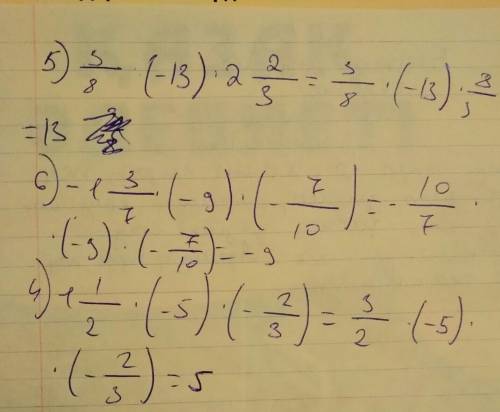 5) 3/8 · (-13) · 2 2/3 = 3/8 · (-13) · 8/3
= 13
6) -1 3/7 · (-9) · (- 7/10) = - 10/7 ·
· (-9) · (- 7/10) = -9
4) 1 1/2 · (-5) · (- 2/3) = 3/2 · (-5) ·
· (- 2/3) = 5